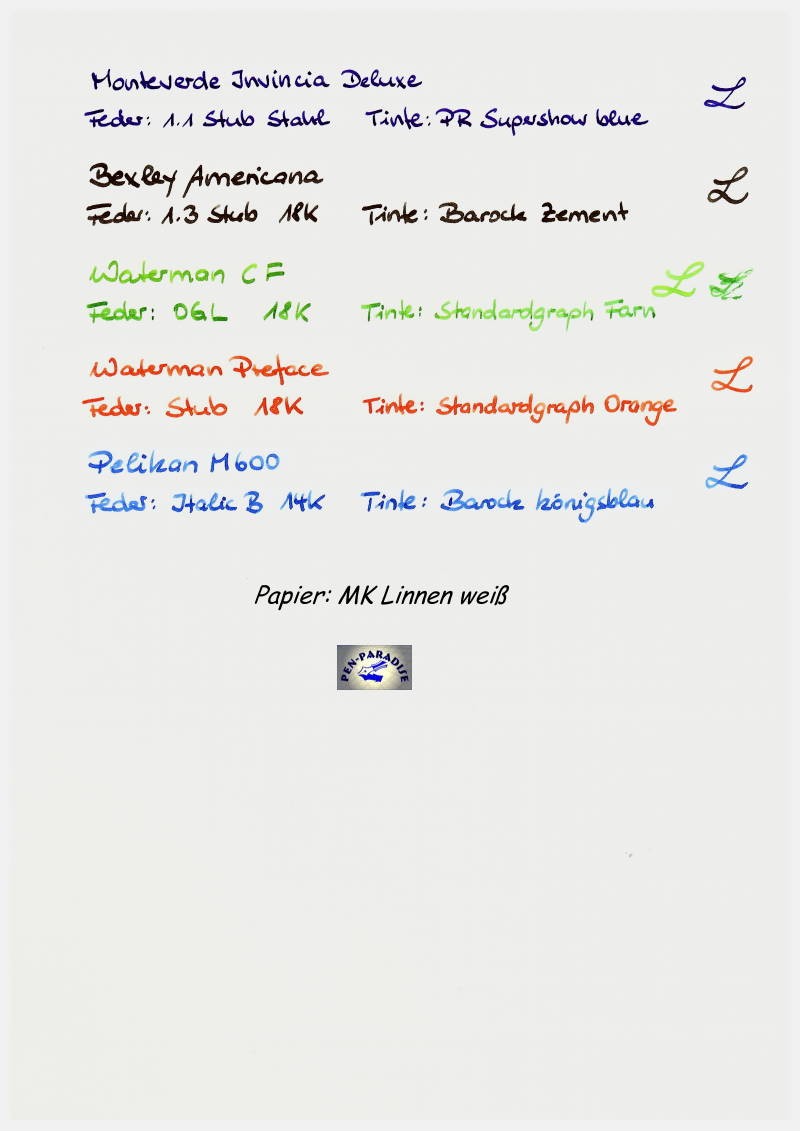 Monteverde Invincia Deluxe L
Feder: 1.1 Stub Stahl Tinte: PR Supershow blue
Bexley Americana L
Feder: 1.3 Stub 18K Tinte: Barock Zement
Waterman CF L L
Feder: OGL 18K Tinte: Standardgraph Farn
Waterman Preface L
Feder: Stub 18K Tinte: Standardgraph Orange
Pelikan M600 L
Feder: Italic B 14K Tinte: Barock königsblau
Papier: MK Linnen weiß
PEN-PARADISE